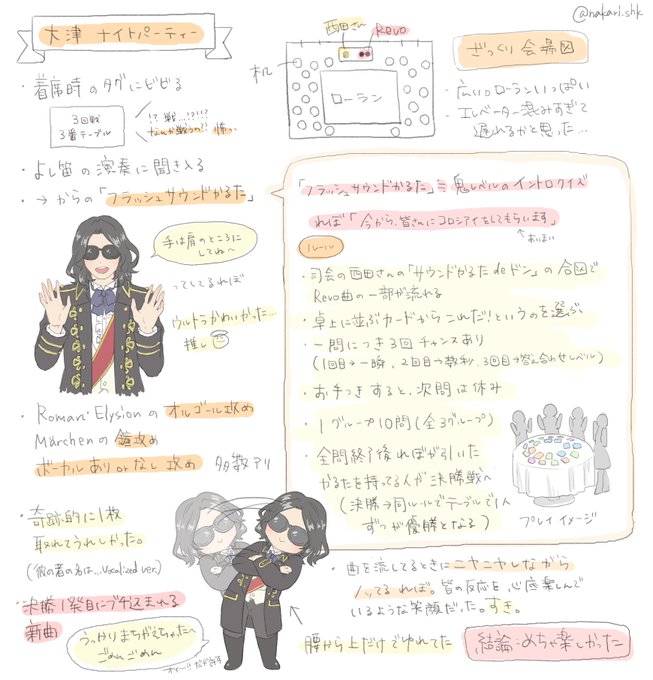 @nakari_shk
大津 ナイトパーティー
・着席時のタグにビビる
3回戦
3番テーブル
!? 戦…!?!?
なんか戦うの!? 怖っ
・よし笛の演奏に聞き入る
・→ からの「フラッシュサウンドかるた」
西田さん
Revo
オル
ローラン
ざっくり会場図
- 広いっローランいっぱい
- エレベーター混みすぎて
遅れるかと思った…
手は肩のところに
してね〜
ってしてるれぼ
ウルトラかわいかった…
推し
「フラッシュサウンドかるた」≒ 鬼レベルのイントロクイズ
れぼ「今から、皆さんにコロシアイをしてもらいます」
あいまい
ルール
・司会の西田さんの「サウンドかるた de ドン」の合図で
Revo曲の一部が流れる
・卓上に並ぶカードからこれだ!というのを選ぶ
・一問につき3回チャンスあり
(1回目→一瞬、2回目→数秒、3回目→答え合わせレベル)
・お手つきすると、次問は休み
・1グループ10問(全3グループ)
・全問終了後れぼが引いた
かるたを持ってる人が決勝戦へ
(決勝→同ルールでテーブルで1人
ずつが優勝となる)
プレイイメージ
・Roman・Elysionのオルゴール攻め
Märchenの鐘攻め
ボーカルありorなし攻め 多数アリ
・奇跡的に1枚
取れてうれしかった。
(彼の者の名は…Vocalized ver.)
・決勝1発目にブチ込まれる
新曲
うっかりまちがえちゃったへ
ごめんごめん
腰から上だけでゆれてた
・曲を流してるときにニヤニヤしながら
ノッてるれぼ。皆の反応を心底楽しんで
いるような笑顔だった。すき。
結論:めちゃ楽しかった